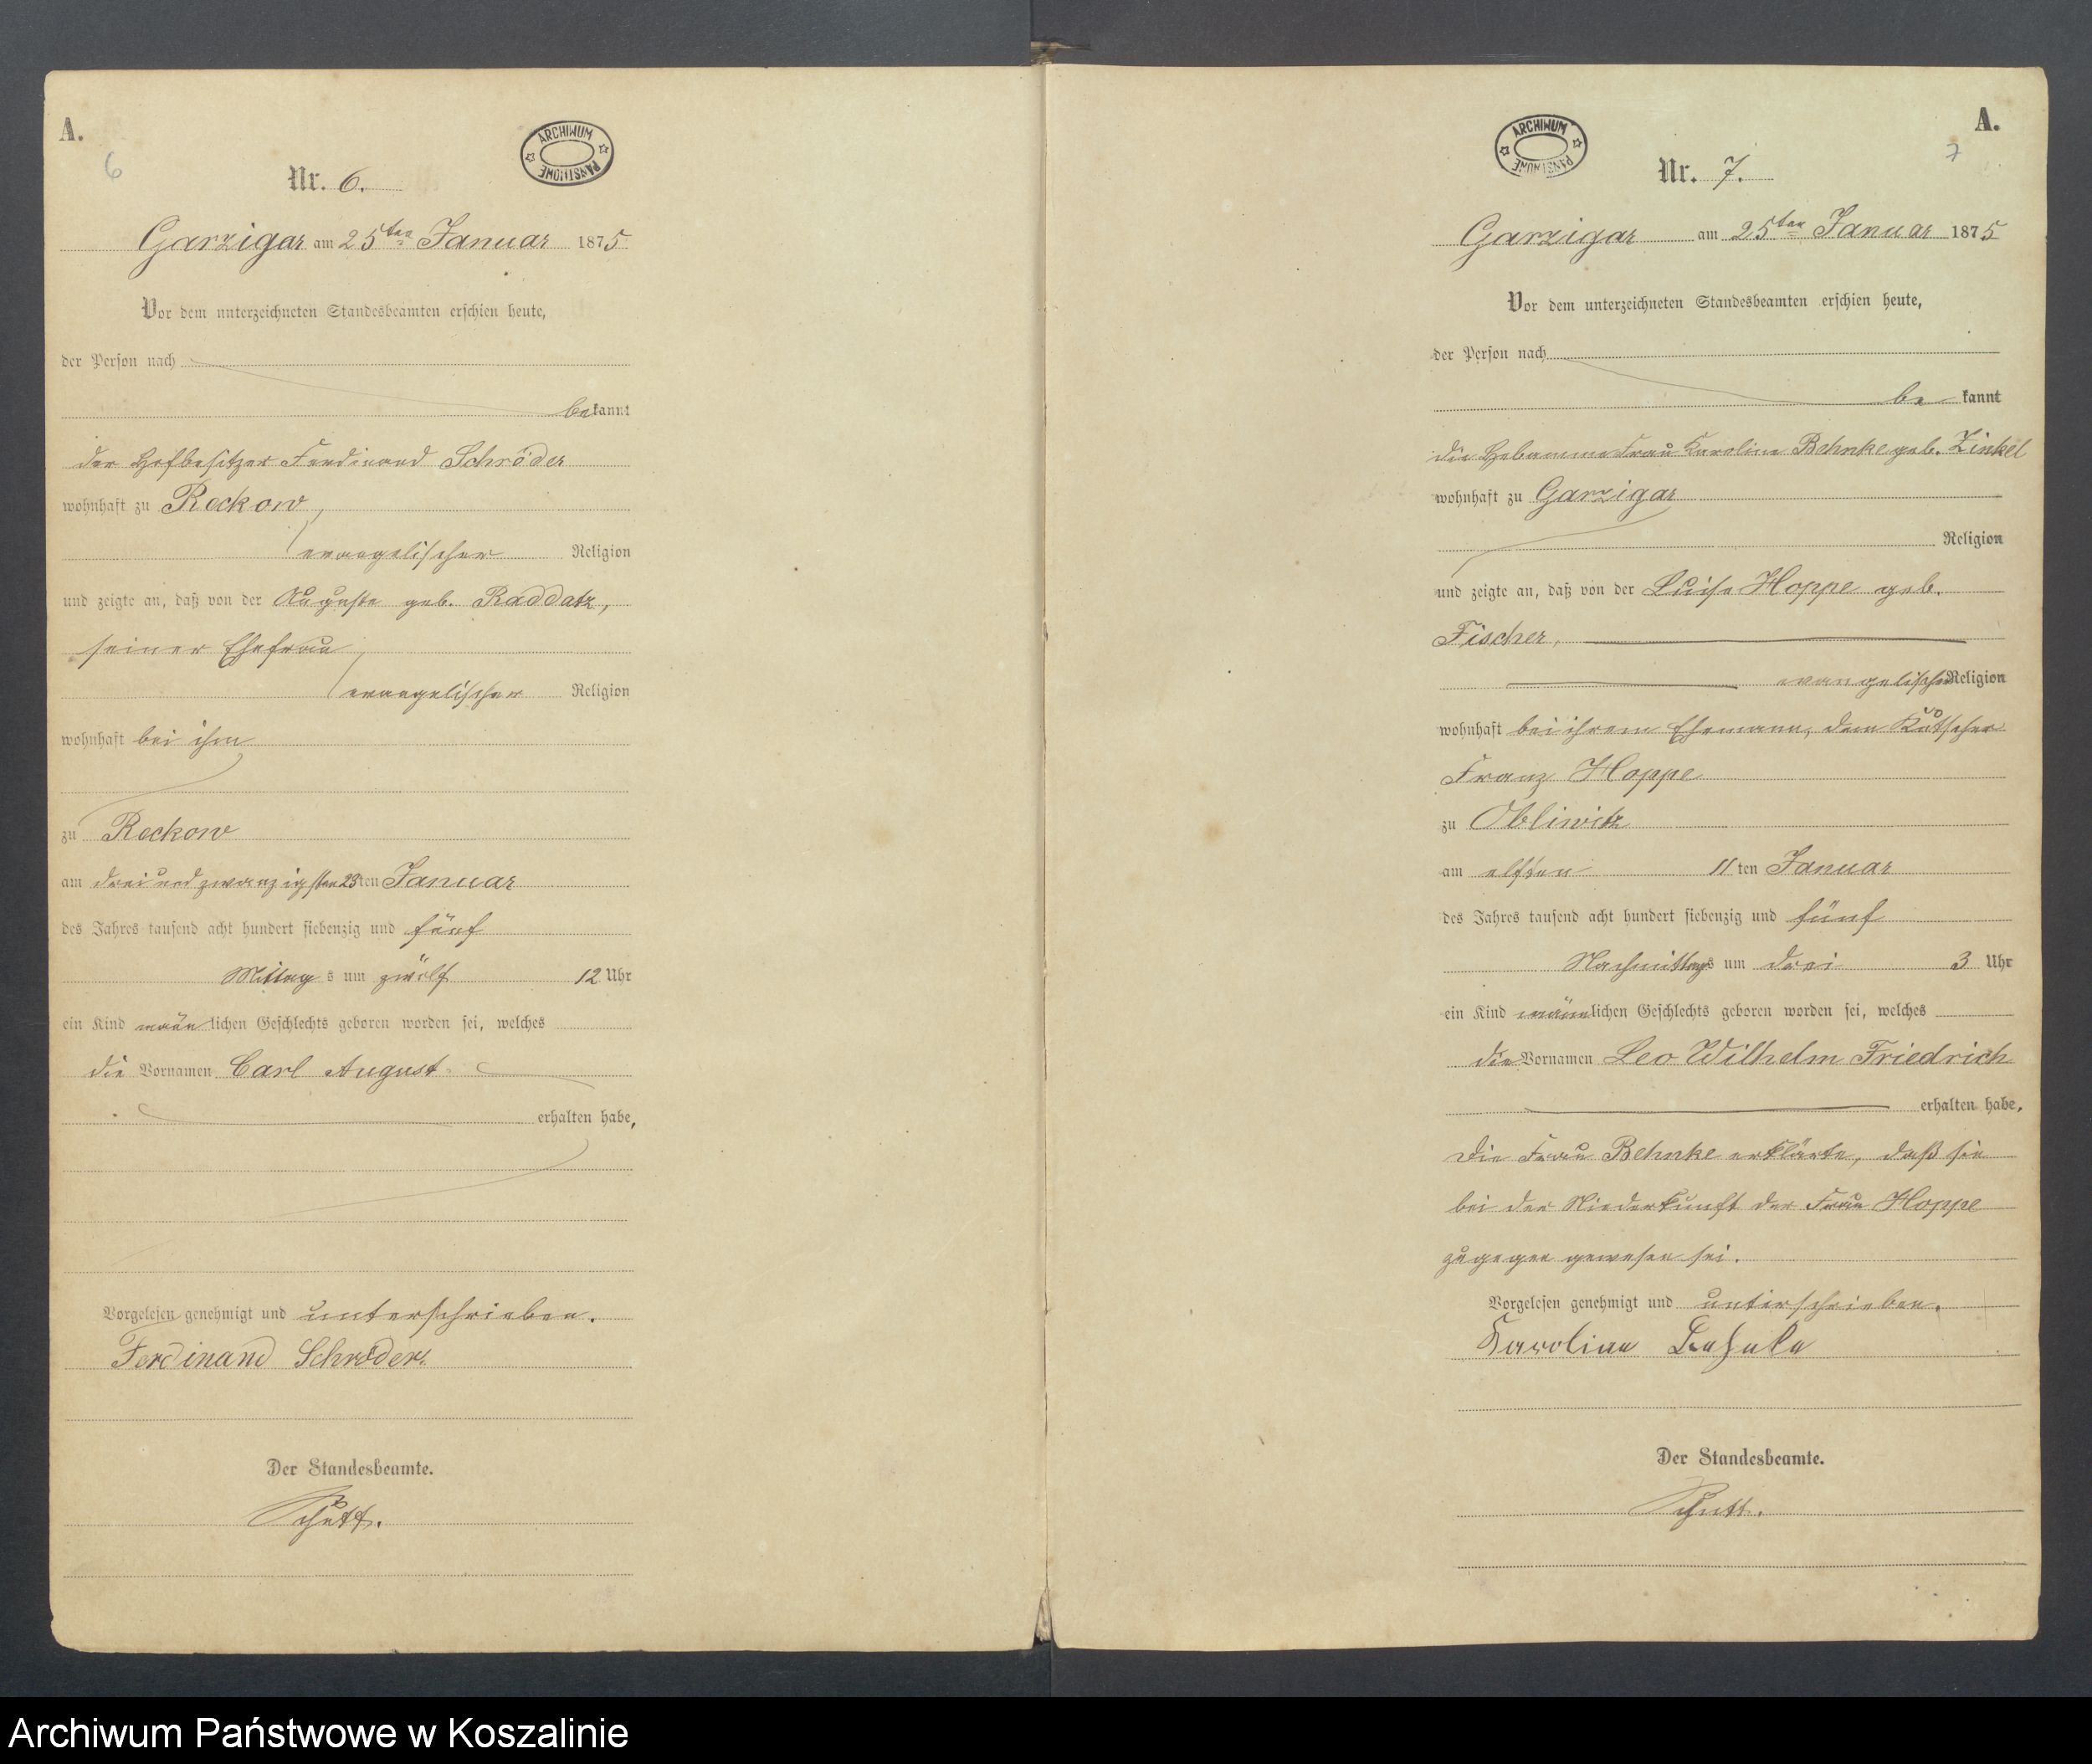 A.
6
ARCHIWUM PAŃSTWOWE
Nr. 6.
Garzigar am 25ten Januar 1875
Vor dem unterzeichneten Standesbeamten erschien heute,
der Person nach
bekannt
der Hofbesitzer Ferdinand Schröder
wohnhaft zu Reckow,
evangelischer Religion
und zeigte an, daß von der Auguste geb. Raddatz,
seiner Ehefrau,
evangelischer Religion
wohnhaft bei ihm
zu Reckow
am drei und zwanzigsten 23ten Januar
des Jahres tausend acht hundert siebenzig und fünf
Mittags um zwölf 12 Uhr
ein Kind männlichen Geschlechts geboren worden sei, welches
die Vornamen Carl August
erhalten habe,
Vorgelesen genehmigt und unterschrieben.
Ferdinand Schröder.
Der Standesbeamte.
Schutt.
A.
7
ARCHIWUM PAŃSTWOWE
Nr. 7.
Garzigar am 25ten Januar 1875
Vor dem unterzeichneten Standesbeamten erschien heute,
der Person nach
bekannt
die Hebamme Frau Karoline Behnke geb. Zinkel
wohnhaft zu Garzigar
Religion
und zeigte an, daß von der Luise Hoppe geb.
Fischer,
evangelischer Religion
wohnhaft bei ihrem Ehemann, dem Kutscher
Franz Hoppe
zu Obliwitz
am elften 11ten Januar
des Jahres tausend acht hundert siebenzig und fünf
Nachmittags um drei 3 Uhr
ein Kind männlichen Geschlechts geboren worden sei, welches
die Vornamen Leo Wilhelm Friedrich
erhalten habe,
Die Frau Behnke erklärte, daß sie
bei der Niederkunft der Frau Hoppe
zugegen gewesen sei.
Vorgelesen genehmigt und unterschrieben.
Karoline Behnke
Der Standesbeamte.
Schutt.
Archiwum Państwowe w Koszalinie